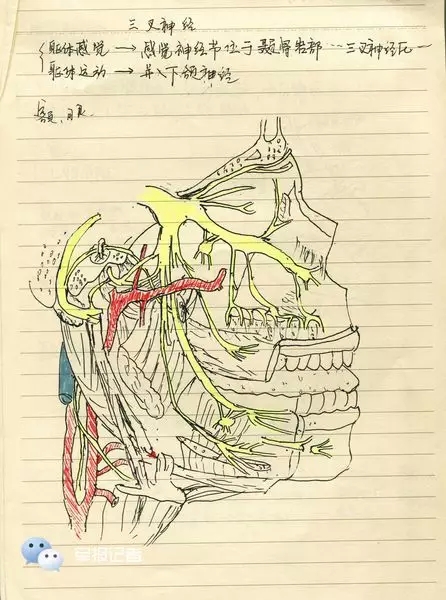 三叉神经
躯体感觉 → 感觉神经节位于颞骨岩部 … 三叉神经压一
躯体运动 → 并入下颌神经
额、眼